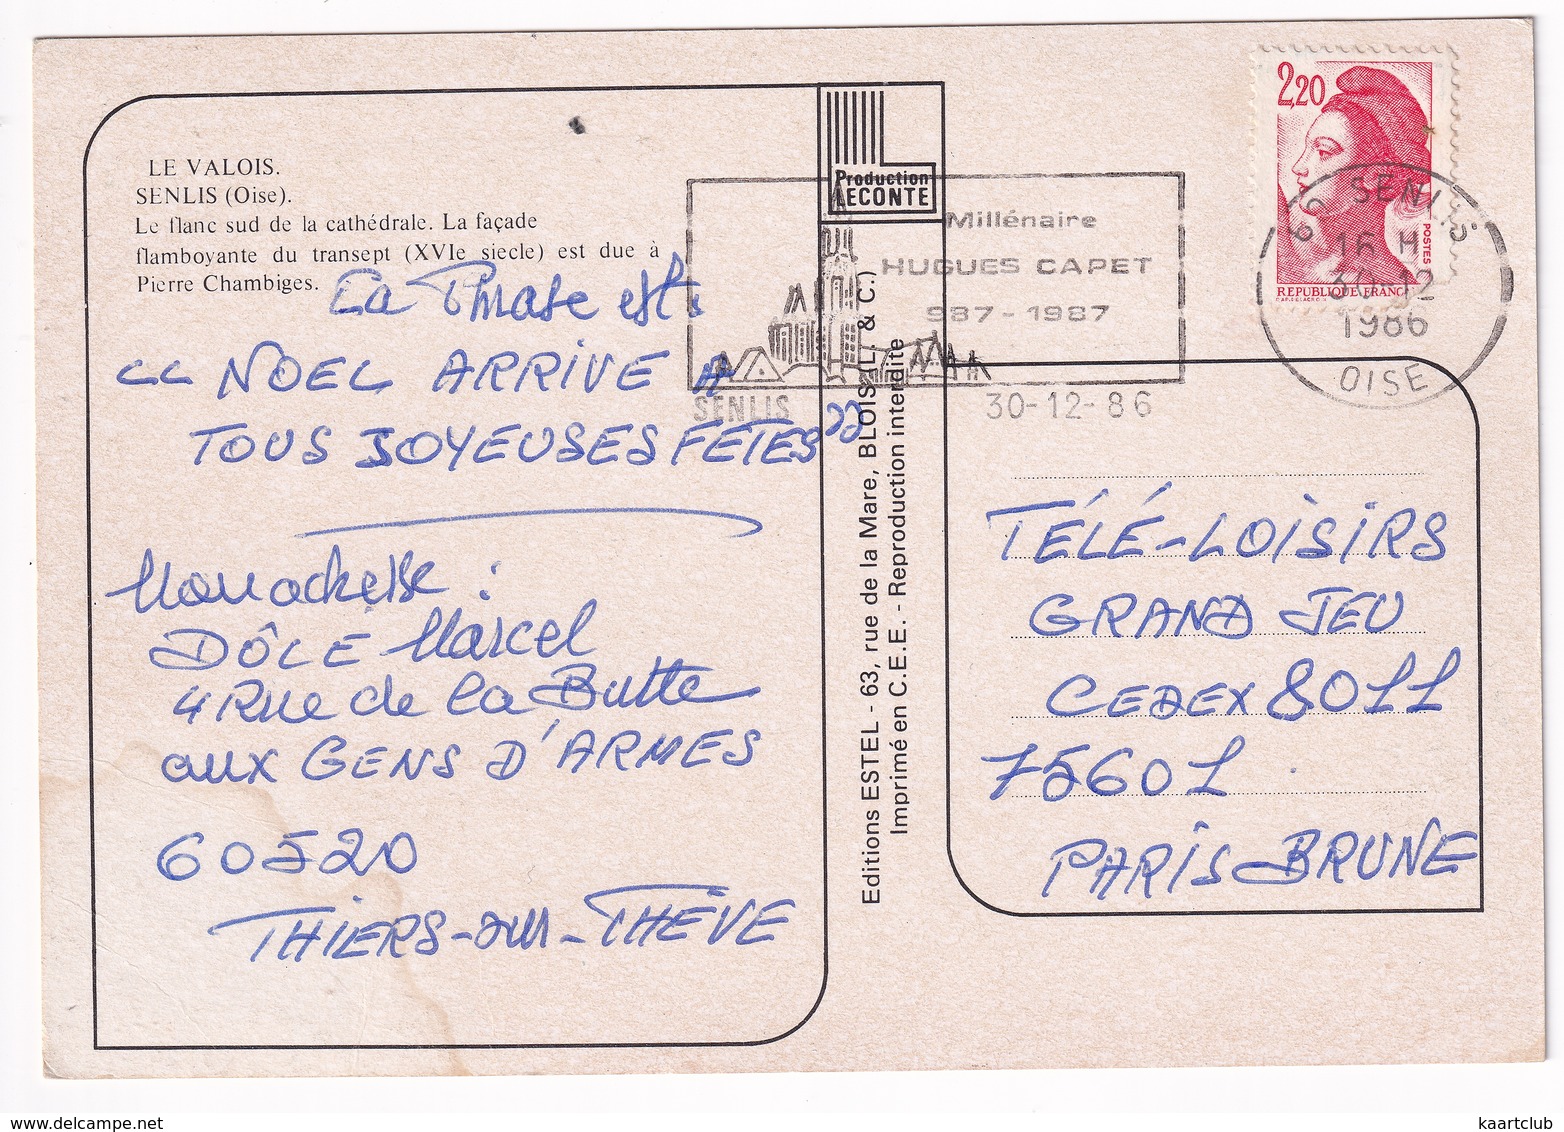 LE VALOIS.
SENLIS (Oise).
Le flanc sud de la cathédrale. La façade
flamboyante du transept (XVIe siecle) est due à
Pierre Chambiges.
La Phrase est:
<< NOEL ARRIVE A
TOUS JOYEUSES FETES >>
DÔLE Marcel
4 Rue de la Butte
aux GENS D'ARMES
60520
THIERS-sur-THÈVE
Production
LECONTE
Editions ESTEL - 63, rue de la Mare, BLOIS (L. & C.)
Imprimé en C.E.E. - Reproduction interdite
Millénaire
HUGUES CAPET
987-1987
SENLIS
30-12-86
2,20
POSTES
REPUBLIQUE FRANC
SENLIS
16 H
30-12
1986
OISE
TÉLÉ-LOISIRS
GRAND JEU
CEDEX 8011
75601
PARIS BRUNE
www.delcampe.net
kaartclub